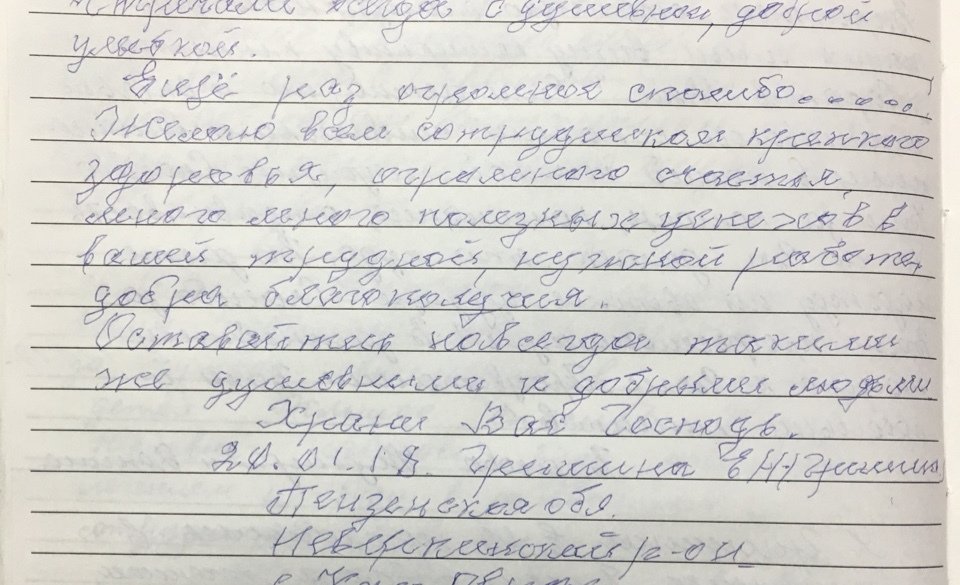 всегда с душевной, доброй
улыбкой.
Ещё раз огромное спасибо......
Желаю всем сотрудникам крепкого
здоровья, огромного счастья,
много много полезных успехов в
вашей трудной, нужной работе,
добра благополучия.
Оставайтесь навсегда такими
же душевными и добрыми людьми.
Храни Вас Господь.
20.01.18.
Пензенская обл.
р-он